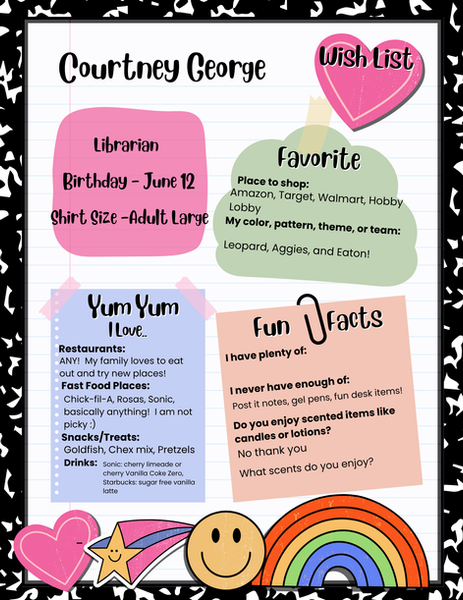 Courtney George
Wish List
Librarian
Birthday - June 12
Shirt Size -Adult Large
Favorite
Place to shop:
Amazon, Target, Walmart, Hobby
Lobby
My color, pattern, theme, or team:
Leopard, Aggies, and Eaton!
Yum Yum
I Love..
Restaurants:
ANY! My family loves to eat
out and try new places!
Fast Food Places:
Chick-fil-A, Rosas, Sonic,
basically anything! I am not
picky :)
Snacks/Treats:
Goldfish, Chex mix, Pretzels
Drinks:
Sonic: cherry limeade or
cherry Vanilla Coke Zero,
Starbucks: sugar free vanilla
latte
Fun Facts
I have plenty of:
I never have enough of:
Post it notes, gel pens, fun desk items!
Do you enjoy scented items like
candles or lotions?
No thank you
What scents do you enjoy?